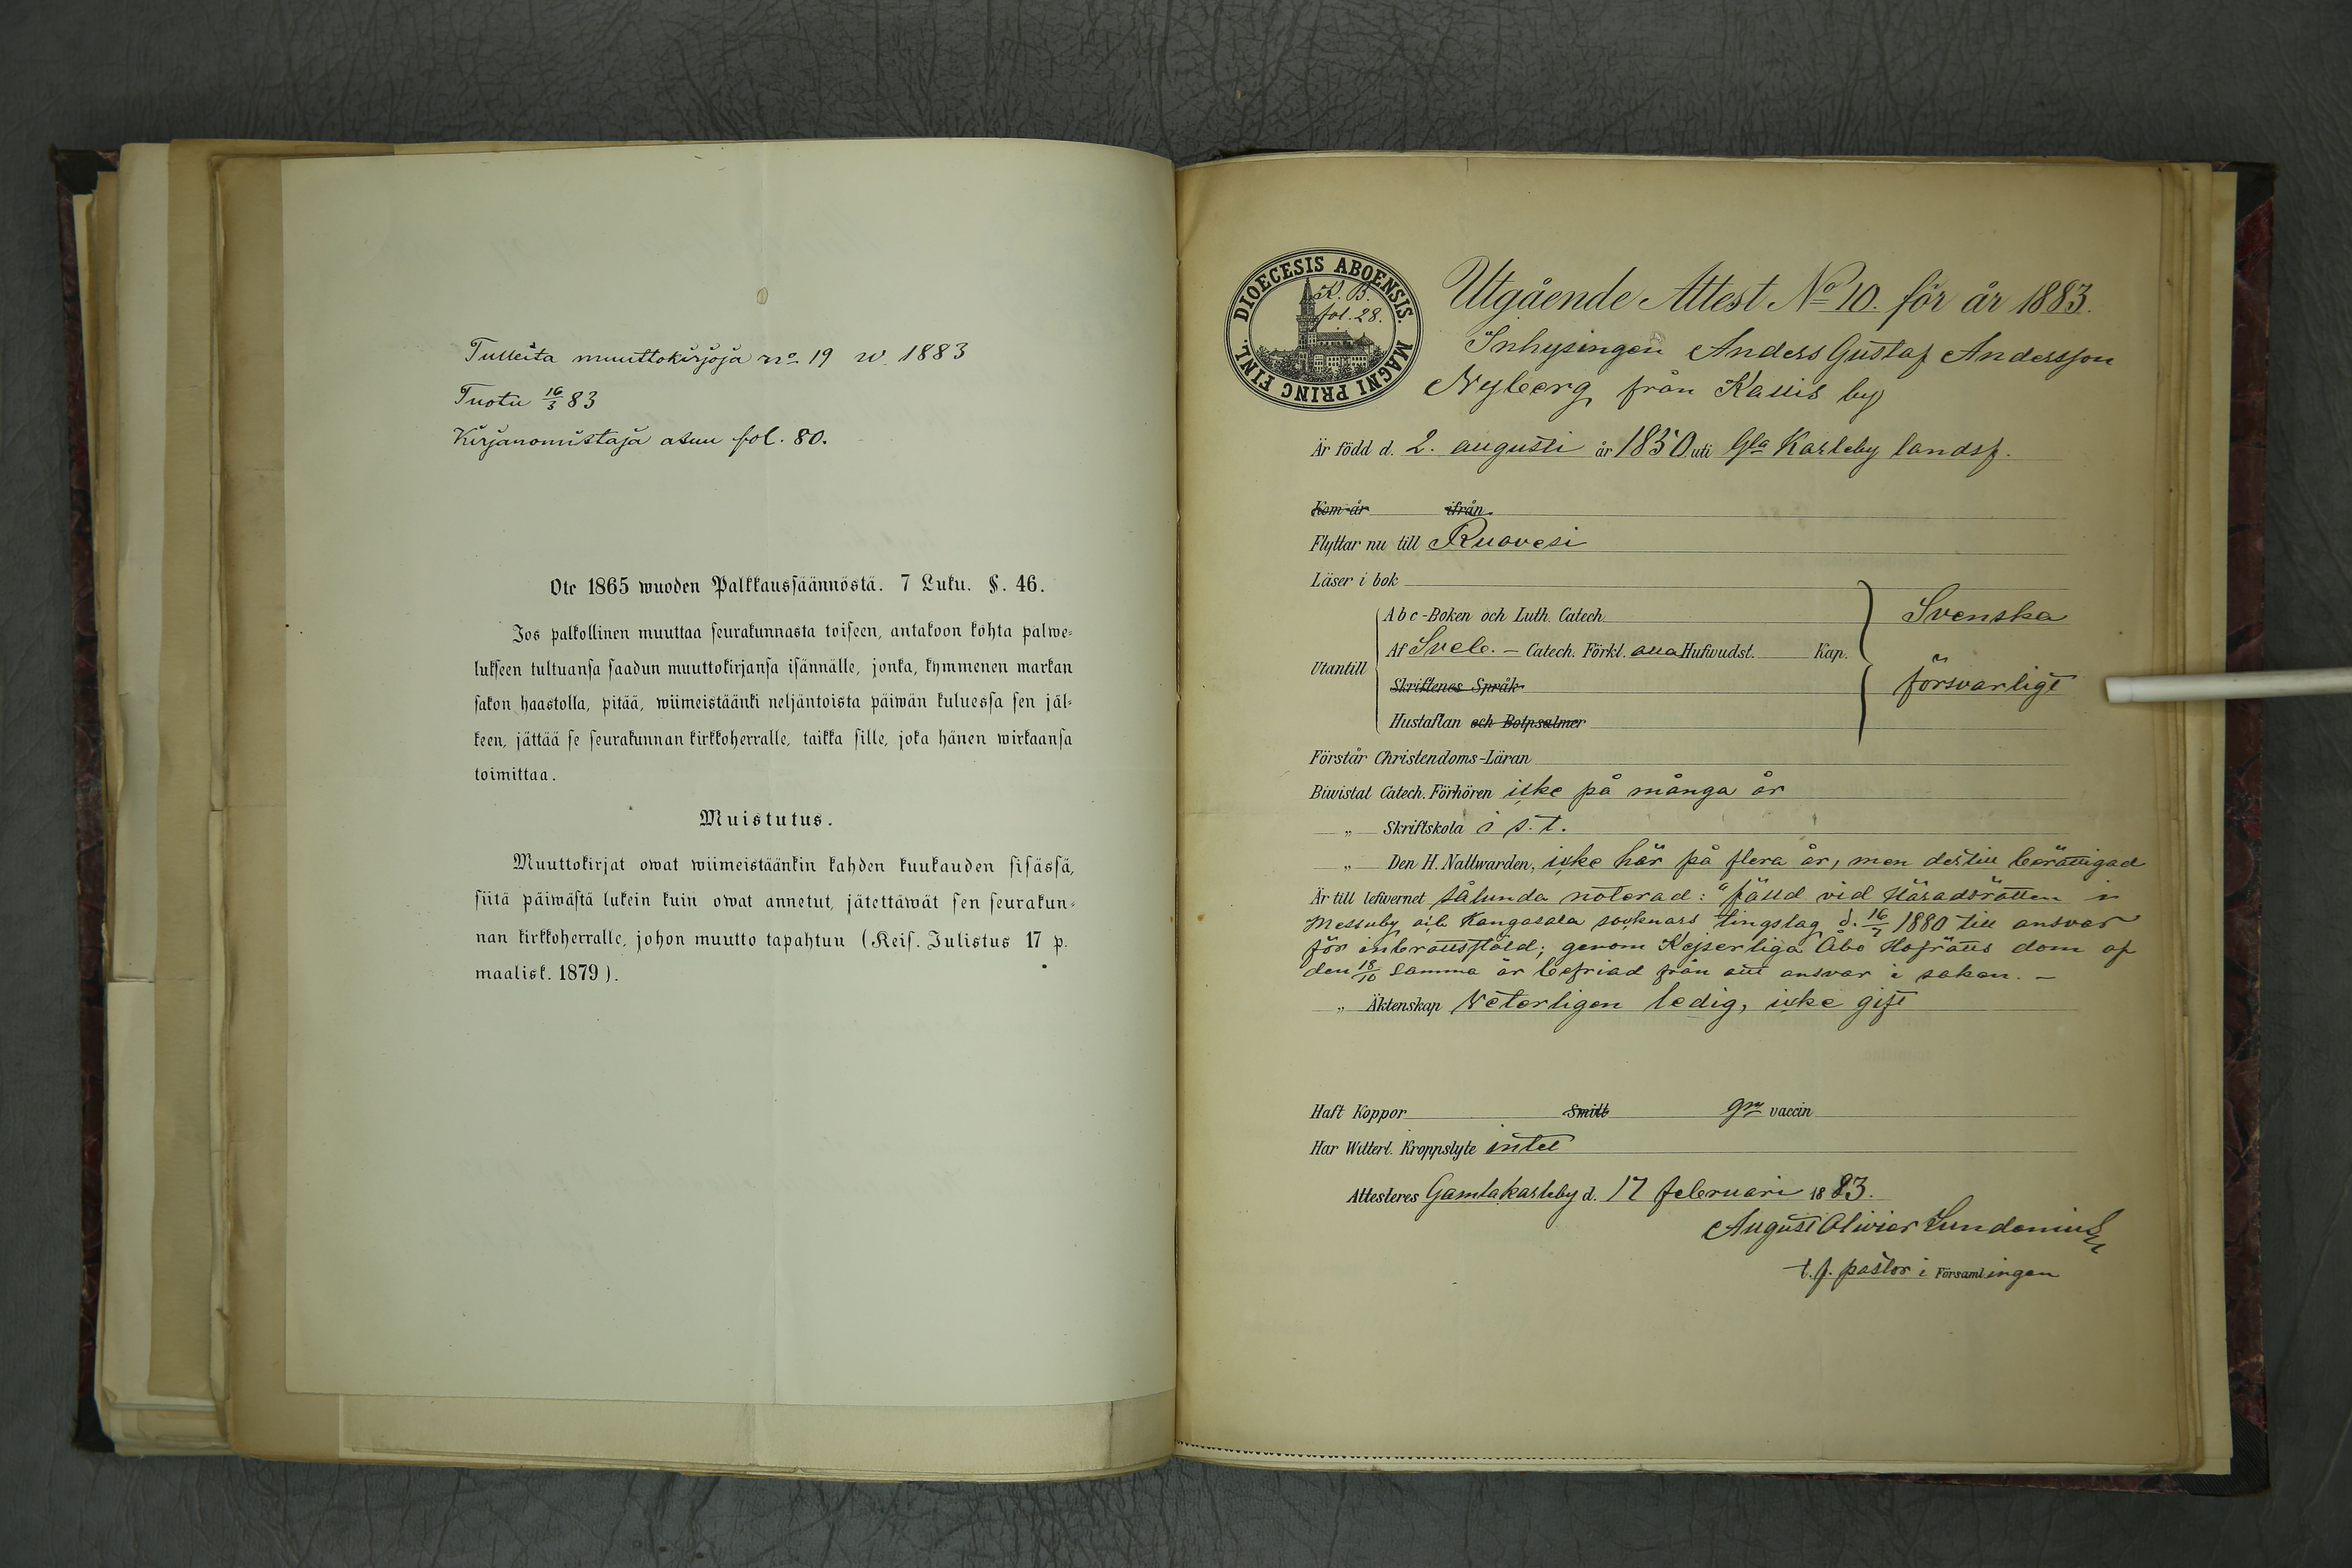 Tulleita muuttokirjoja no 19 w. 1883
Tuotu 16/3 83
Kirjanomistaja asuu fol. 80.
Ote 1865 wuoden Palkkaussäännöstä. 7 Luku. §. 46.
Jos palkollinen muuttaa seurakunnasta toiseen, antakoon kohta palwe-
lukseen tultuansa saadun muuttokirjansa isännälle, jonka, kymmenen markan
sakon haastolla, pitää, wiimeistäänki neljäntoista päiwän kuluessa sen jäl-
keen, jättää se seurakunnan kirkkoherralle, taikka sille, joka hänen wirkaansa
toimittaa.
Muistutus.
Muuttokirjat owat wiimeistäänkin kahden kuukauden sisässä,
siitä päiwästä lukein kuin owat annetut, jätettäwät sen seurakun-
nan kirkkoherralle, johon muutto tapahtuu (Keis. Julistus 17 p.
maalisk. 1879).
DIOECESIS ABOENSIS. MAGNI PRINC FINL.
K. B.
fol. 28.
Utgående Attest No 10. för år 1883.
Inhysingen Anders Gustaf Andersson
Nyberg från Kallis by
Är född d. 2. augusti år 1850 uti Gla Karleby landsf.
Kom år ifrån
Flyttar nu till Ruovesi
Läser i bok
Abc-Boken och Luth. Catech.
Svenska
Utantill
Af Sveb. - Catech. Förkl. alla Hufwudst. Kap.
Skriftenes Språk
försvarligt
Hustaflan och Botpsalmer
Förstår Christendoms-Läran
Biwistat Catech. Förhören icke på många år
„ Skriftskola i s. t.
„ Den H. Nattwarden, icke här på flera år, men dertill berättigad
Är till lefwernet sålunda noterad: "fälld vid Häradsrätten i
Messuby och Kangasala socknars tingslag d. 16/7 1880 till ansvar
för inbrottsstöld; genom Kejserliga Åbo Hofrätts dom af
den 18/10 samma år befriad från allt ansvar i saken. -
„ Äktenskap Veterligen ledig, icke gift
Haft Koppor Smitt gm vaccin
Har Witterl. Kroppslyte intet
Attesteres Gamlakarleby d. 17 februari 1883.
August Olivier Sundenius
t. f. pastor i Församlingen